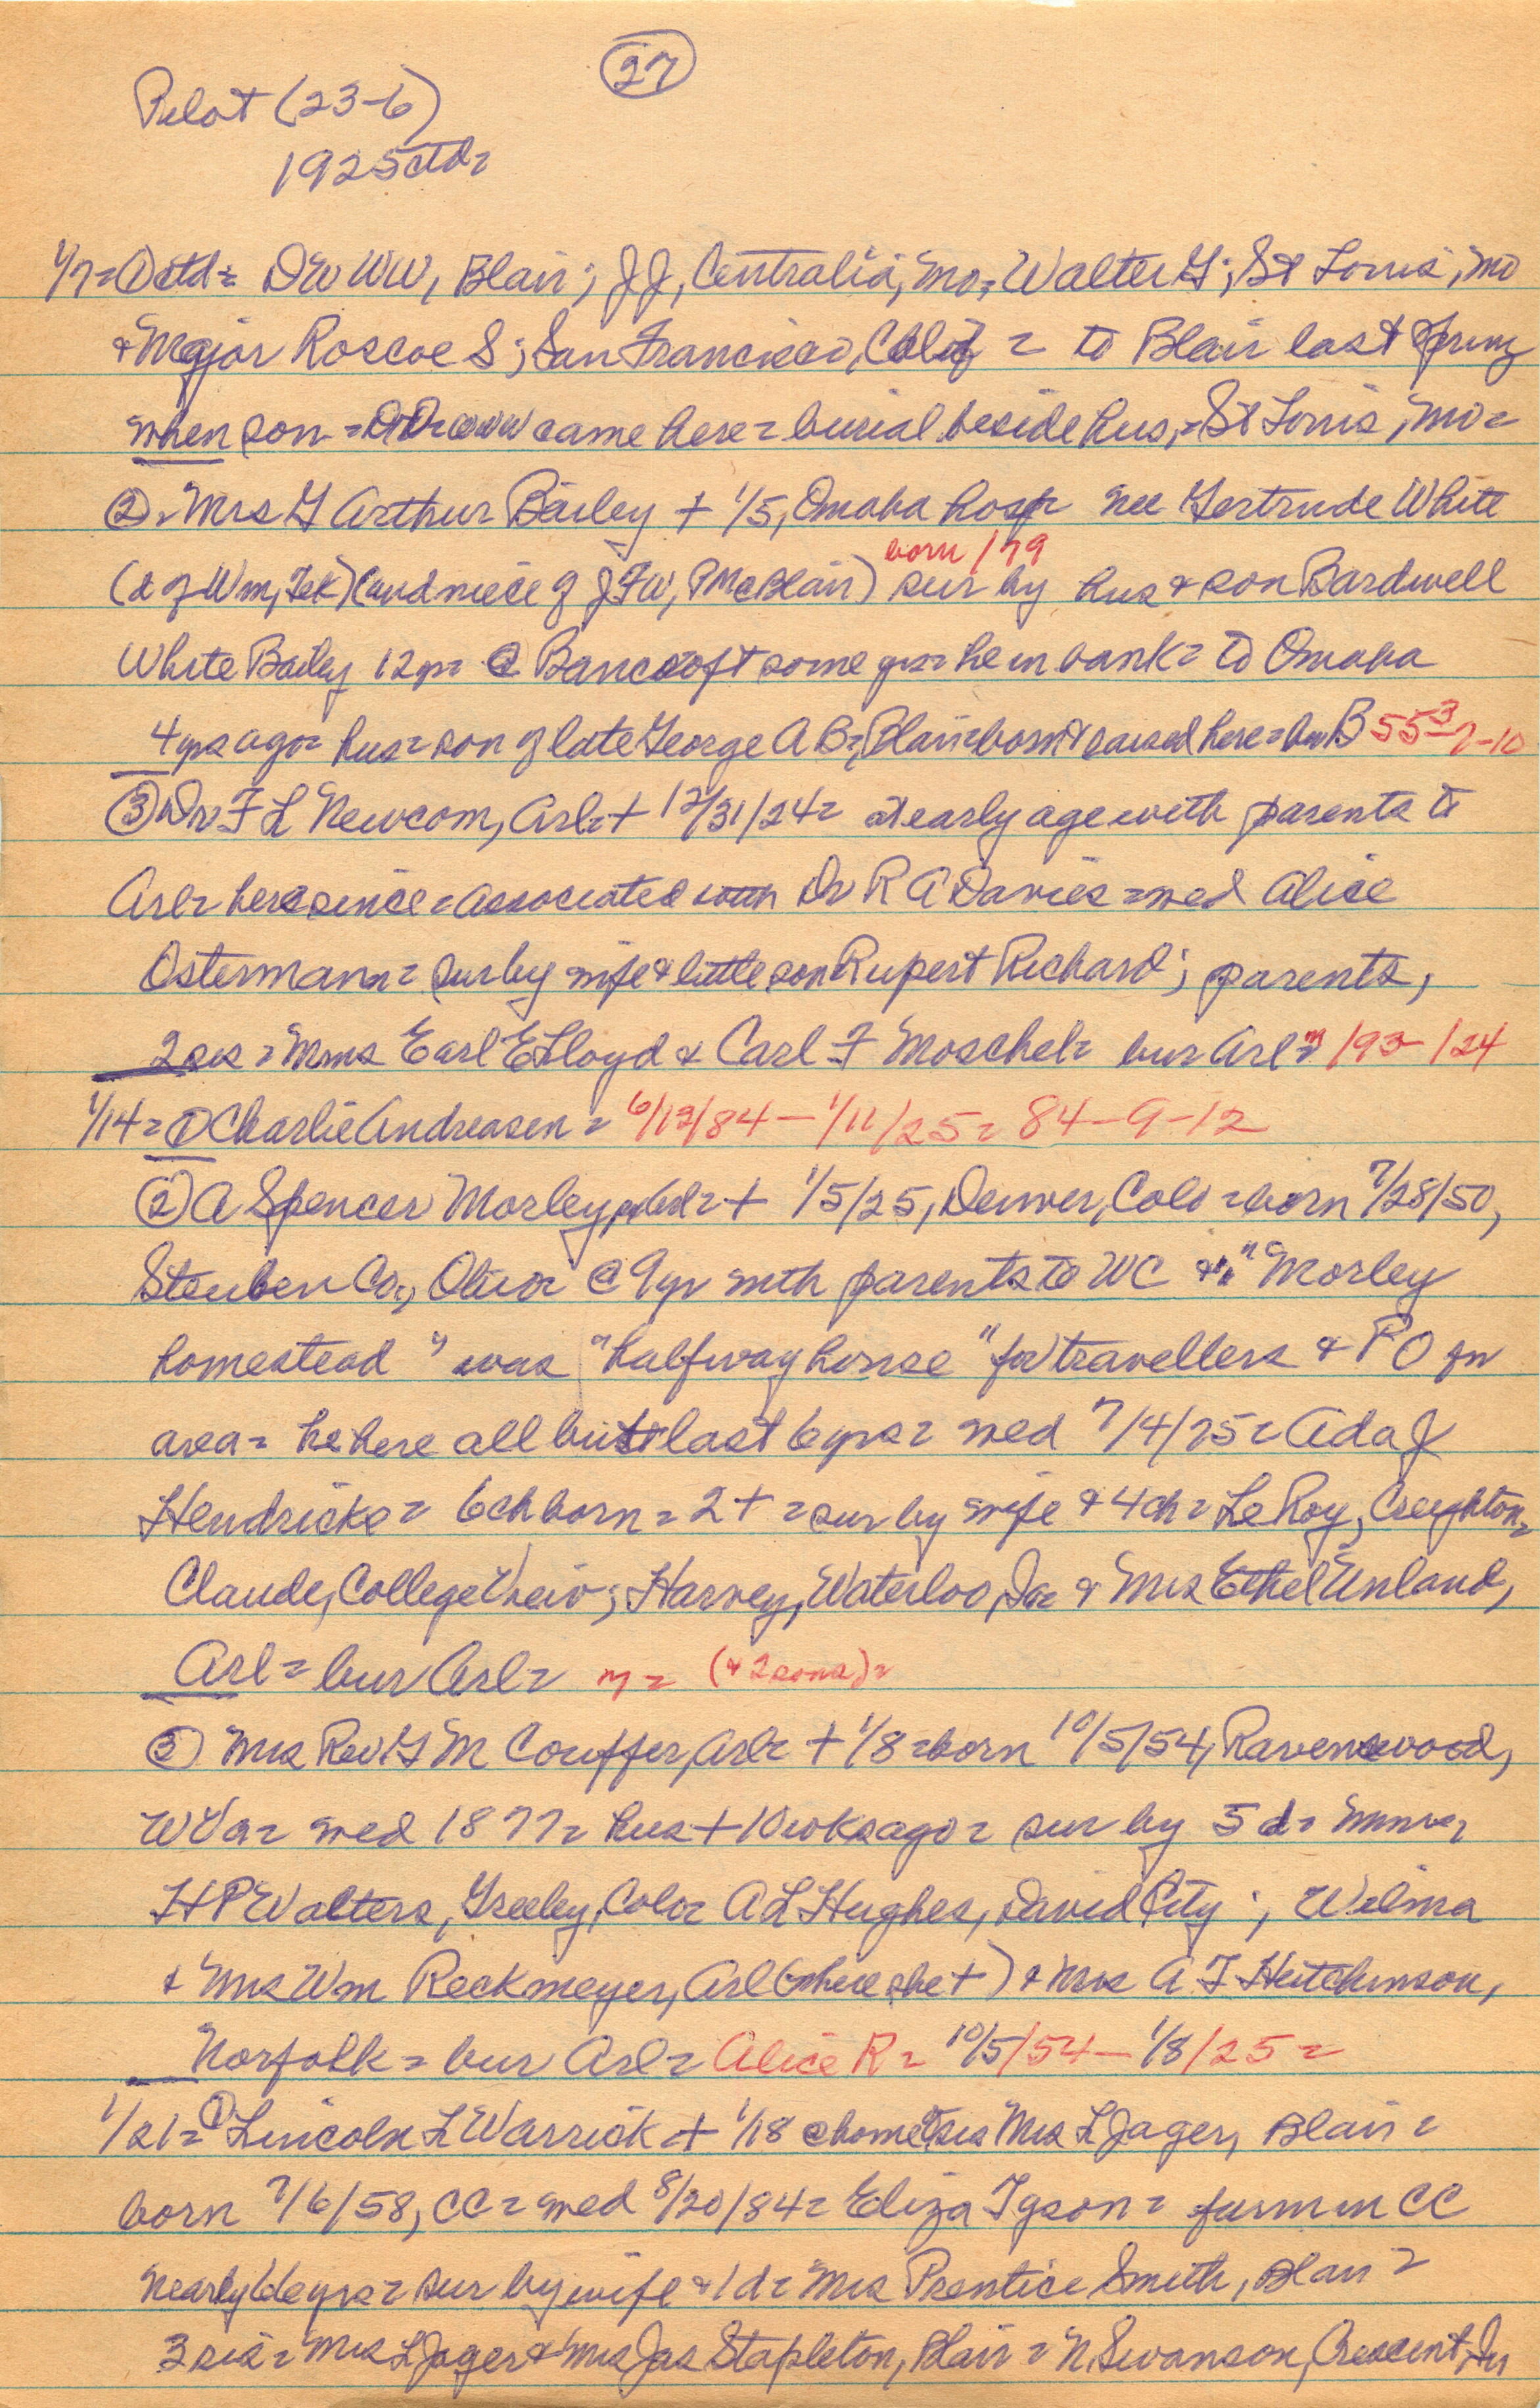 27
Pilot (23-6)
1925ctd=
1/7=① ctd= Dr WW, Blair; JJ, Centralia, Mo; Walter G; St Louis, Mo
& Major Roscoe S; San Francisco, Calif = to Blair last spring
when son = Dr WW came here = burial beside hus,= St Louis, Mo=
②= Mrs G Arthur Bailey + 1/5, Omaha hosp= nee Gertrude White
born /79
(d of Wm, Tek) (and niece of JFW, PMcBlair) sur by hus & son Bardwell
White Bailey 12yr= @ Bancroft some yrs= he in bank= to Omaha
4yrs ago= hus= son of late George A B=, Blair= born & raised here= bur B 55-3-7-10
③ Dr F L Newcom, Arl= + 12/31/24= at early age with parents to
Arl= here since= associated with Dr R A Davies = wed Alice
Ostermann= sur by wife & little son Rupert Richard; parents,
2 sis = Mms Earl E Lloyd & Carl F Moschel= bur Arl= /93-/24
1/14=① Charlie Andreasen = 6/12/84 - 1/11/25= 84-9-12
② A Spencer Morley, + 1/5/25, Denver, Colo = born 7/28/50,
Steuben Co, Ohio @ 9yr with parents to WC & " Morley
homestead " was "halfway house " for travellers & PO in
area= he here all but last 6yrs= wed 7/4/75= Ada J
Hendricks= 6ch born= 2+ = sur by wife & 4ch= LeRoy, Creighton=
Claude, College View; Harvey, Waterloo, Ia= & Mrs Ethel Unland,
Arl= bur Arl= m = (& 2 sons)=
③ Mrs Rev G M Couffer, Arl= + 1/8= born 10/5/54, Ravenswood,
W Va= wed 1877= hus + 10 wks ago= sur by 5 d= Mms=
H P Walters, Greeley, Colo= A L Hughes, David City; Wilma
& Mrs Wm Reckmeyer, Arl (where she +) & Mrs A F Hutchinson,
Norfolk = bur Arl= Alice R= 10/5/54 - 1/8/25 =
1/21=① Lincoln L Warrick + 1/18 @ home of sis Mrs L Jager, Blair =
born 7/6/58, CC = wed 8/20/84= Eliza Tyson = farm in CC
nearly yrs= sur by wife & 1 d= Mrs Prentice Smith, Blair =
3 sis= Mrs L Jager & Mrs Jas Stapleton, Blair = N Swanson, Crescent, Ia